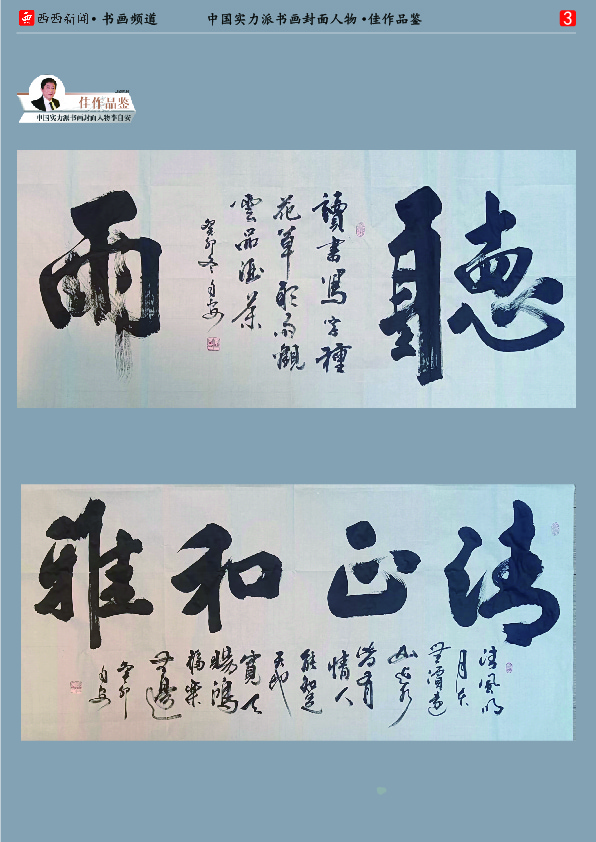 西西新闻·书画频道
中国实力派书画封面人物·佳作品鉴
3
佳作品鉴
中国实力派书画封面人物李自安
聽雨
讀書寫字種
花草聽雨觀
雲品酒茶
癸卯冬自安
清正和雅
清風明
月本
無價遠
山近水
皆有
情人
能知足
天地
寬天
賜鴻
福樂
無邊
癸卯
自安